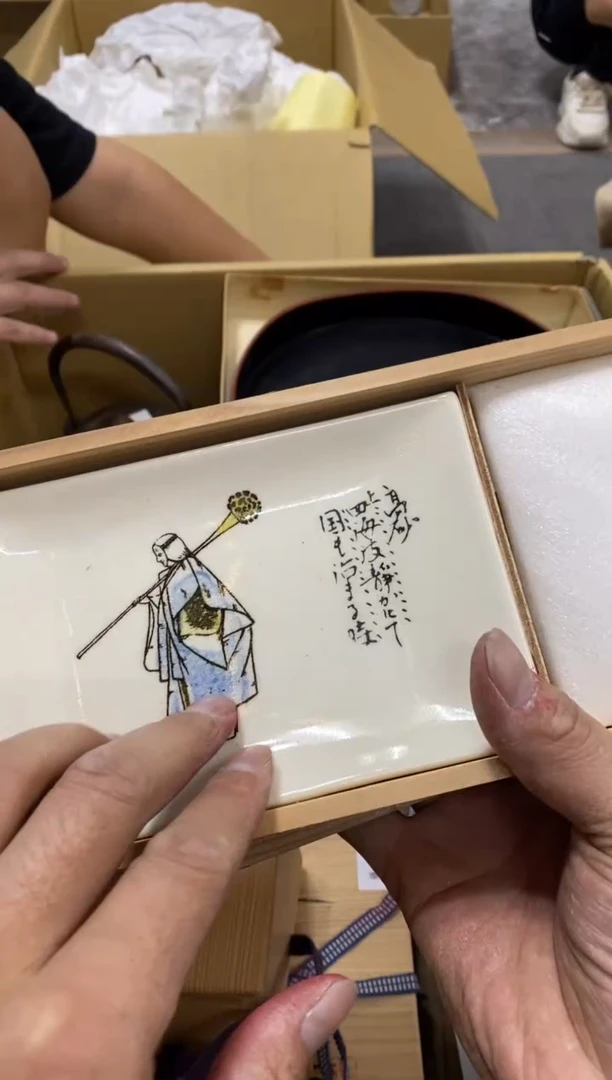 高砂
四海波静かにて
国も治まる時